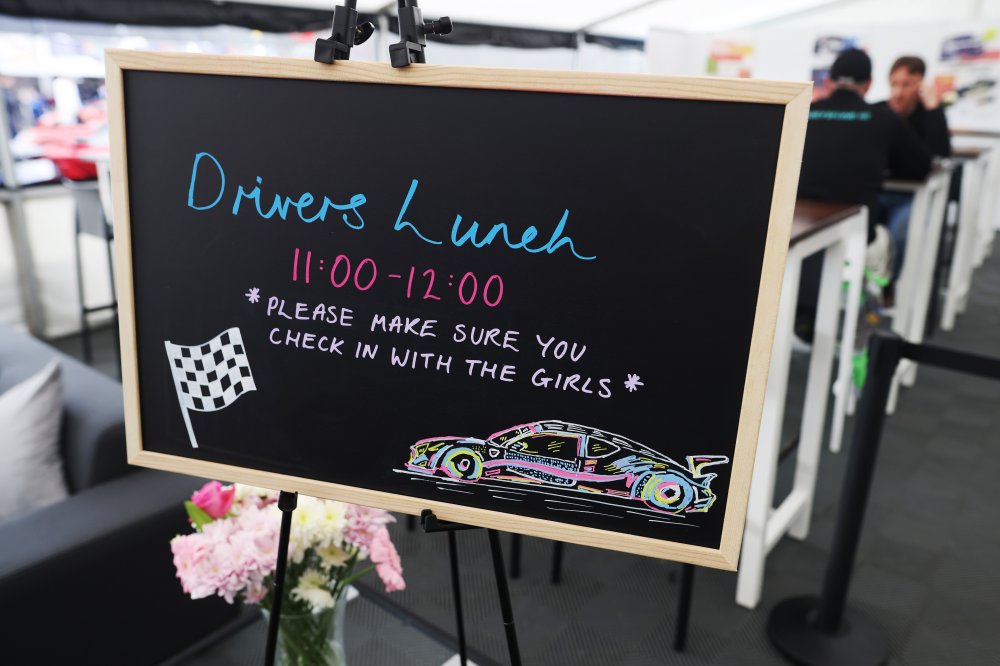 Drivers Lunch
11:00-12:00
*PLEASE MAKE SURE YOU
CHECK IN WITH THE GIRLS*